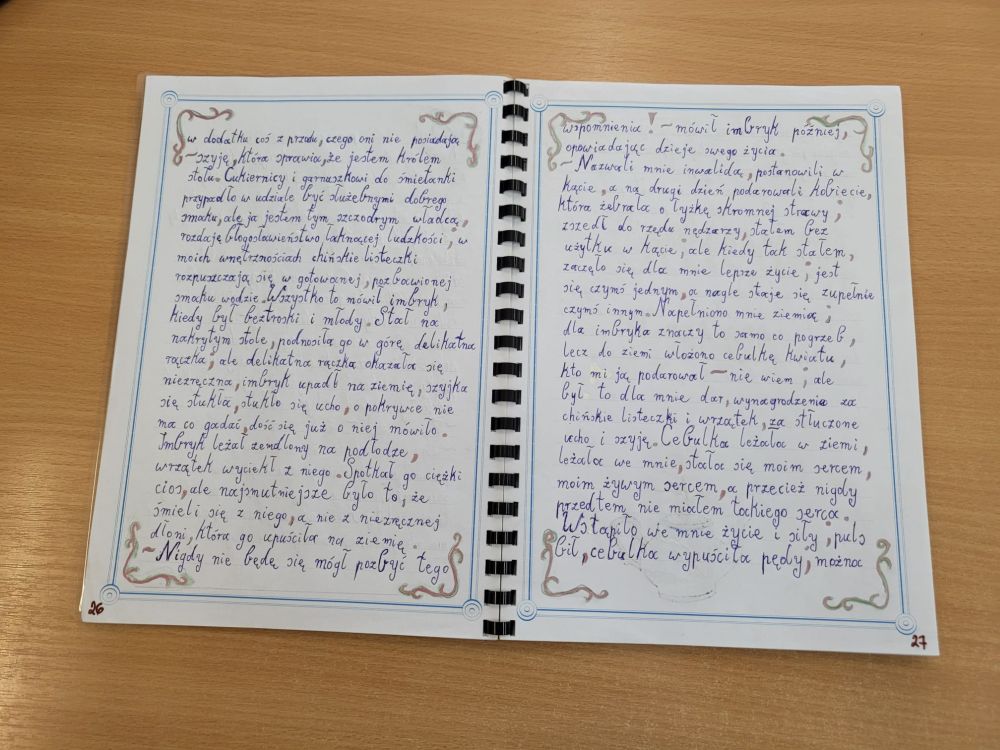 w dodatku coś z przodu, czego oni nie posiadają
– szyję, która sprawia, że jestem królem
stołu. Cukiernicy i garnuszkowi do śmietanki
przypadło w udziale być służebnymi dobrego
smaku, ale ja jestem tym szczodrym władcą,
rozdaję błogosławieństwo łaknącej ludzkości; w
moich wnętrznościach chińskie listeczki
rozpuszczają się w gotowanej, pozbawionej
smaku wodzie. Wszystko to mówił imbryk,
kiedy był beztroski i młody. Stał na
nakrytym stole, podnosiła go w górę delikatna
rączka; ale delikatna rączka okazała się
niezręczna, imbryk upadł na ziemię, szyjka
się stukła, stukło się ucho, o pokrywce nie
ma co gadać, dość się już o niej mówiło.
Imbryk leżał zemdlony na podłodze,
wrzątek wyciekł z niego. Spotkał go ciężki
cios, ale najsmutniejsze było to, że
śmieli się z niego, a nie z niezręcznej
dłoni, która go upuściła na ziemię.
– Nigdy nie będę się mógł pozbyć tego
26
wspomnienia! – mówił imbryk później,
opowiadając dzieje swego życia.
– Nazwali mnie inwalidą, postanowili w
kącie, a na drugi dzień podarowali kobiecie,
która żebrała o łyżkę skromnej strawy,
zszedł do rzędu nędzarzy, stałem bez
użytku w kącie, ale kiedy tak stałem,
zaczęło się dla mnie lepsze życie; jest
się czymś jednym, a nagle staje się zupełnie
czymś innym. Napełniono mnie ziemią;
dla imbryka znaczy to samo co pogrzeb,
lecz do ziemi włożono cebulkę kwiatu,
kto mi ją podarował – nie wiem; ale
był to dla mnie dar, wynagrodzenia za
chińskie listeczki i wrzątek, za stłuczone
ucho i szyję. Cebulka leżała w ziemi,
leżała we mnie, stała się moim sercem,
moim żywym sercem, a przecież nigdy
przedtem nie miałem takiego serca.
Wstąpiło we mnie życie i siły; puls
bił, cebulka wypuściła pędy; można
27